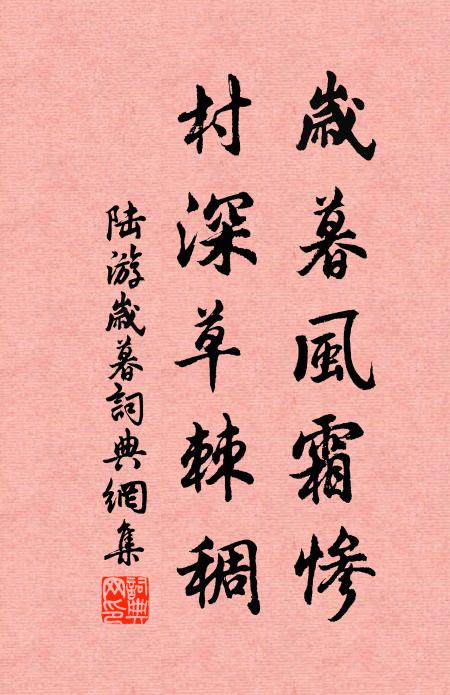 歲暮風霜慘
村深草棘稠
陆游歲暮詞典網集
詞典网印